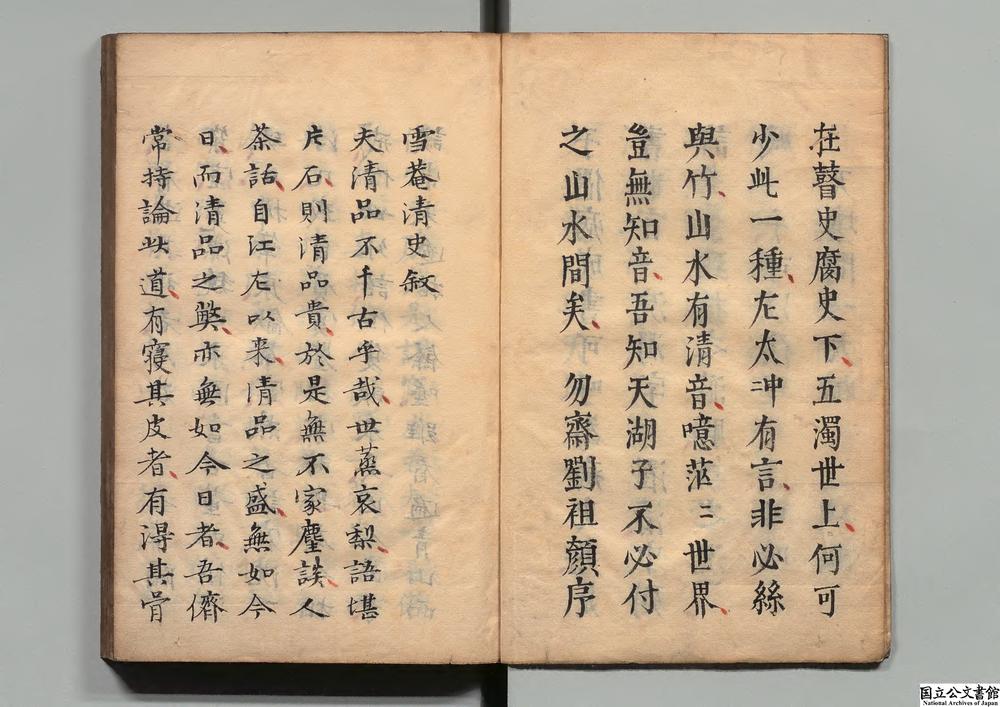 在瞽史腐史下、五濁世上、何可
少此一種、左太冲有言、非必絲
與竹、山水有清音、噫茫〻世界、
豈無知音、吾知天湖子不必付
之山水間矣、勿齋劉祖顔序
雪菴清史叙
夫清品不千古乎哉、世蒸哀梨、語堪
片石、則清品貴、於是無不家麈談、人
茶話、自江左以来、清品之盛、無如今
日、而清品之弊、亦無如今日者、吾儕
常持論此道、有寝其皮者、有得其骨
国立公文書館
National Archives of Japan